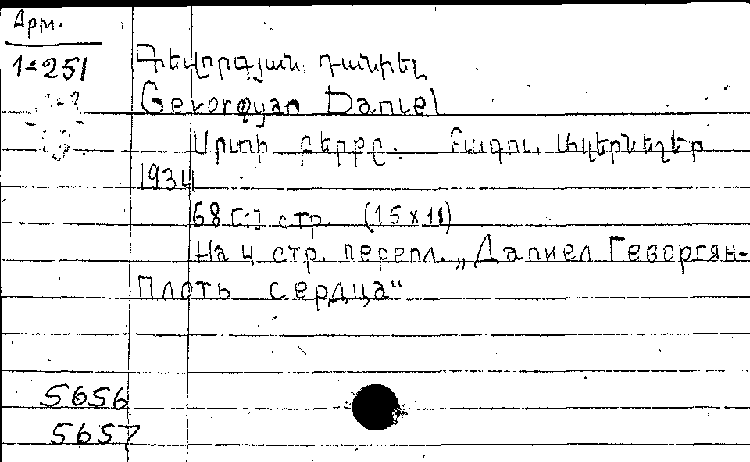 Арм.
1-251
Գևորգյան Դանիել
Gevorqyan Daniel
Սրտի բերքը. Բաքու, Ազերնեշր
1934
68 [2] стр. (15 x 11)
На 4 стр. перепл. „Даниел Геворгян-
Плоть сердца"
5656
5657